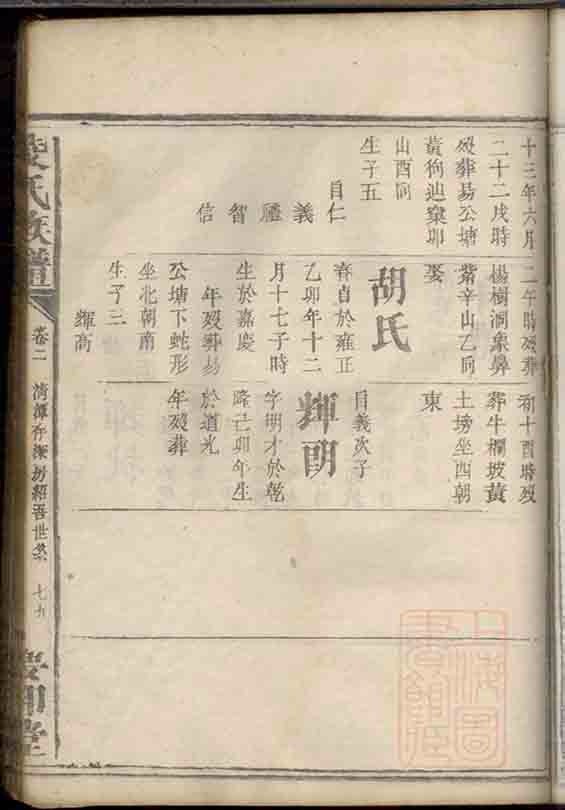 十三年六月
二十二戌時
歿葬易公塘
黃狗迪窠卯
山酉向
生子五
自仁
義
禮
智
信
二午時歿葬
楊樹洞象鼻
紫辛山乙向
娶
胡氏
春貞於雍正
乙卯年十二
月十七子時
生於嘉慶
年歿葬易
公塘下蛇形
坐北朝南
生子三
輝高
初十酉時歿
葬牛欄坡黃
土塝坐西朝
東
輝朗
自義次子
字明才於乾
隆己卯年生
於道光
年歿葬
氏族譜
卷二
清潭仔深坊紹吾世系
七十
上海圖書館藏